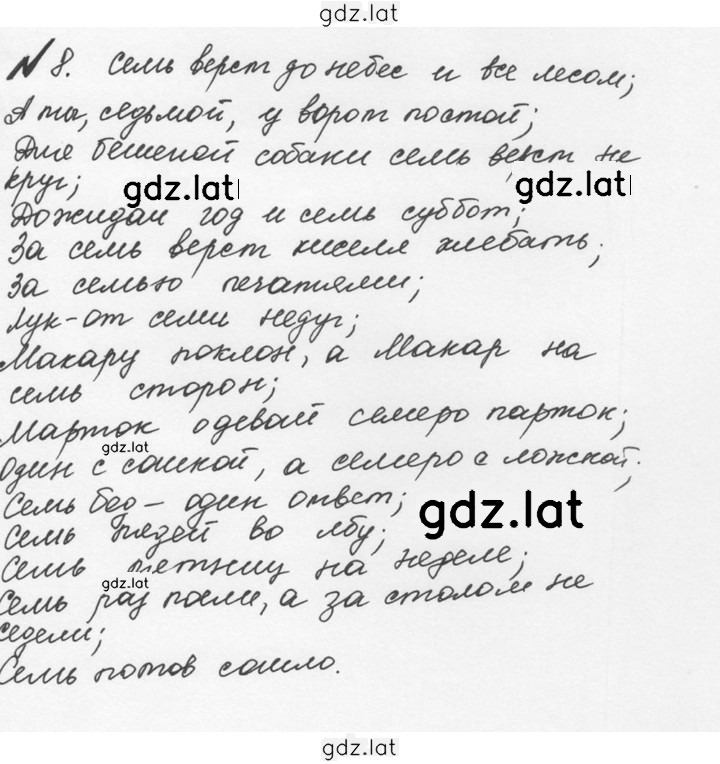 gdz.lat
N 8. Семь верст до небес и все лесом;
А ты, седьмой, у ворот постой;
Для бешеной собаки семь верст не
круг;
gdz.lat
gdz.lat
Дожидай год и семь суббот;
За семь верст киселя хлебать;
За семью печатями;
Лук-от семи недуг;
Макару поклон, а Макар на
семь сторон;
Марток одевай семеро парток;
gdz.lat
один с сошкой, а семеро с ложкой;
Семь бед - один ответ;
gdz.lat
Семь пядей во лбу;
Семь пятниц на неделе;
gdz.lat
Семь раз поели, а за столом не
седели;
Семь потов сошло.
gdz.lat